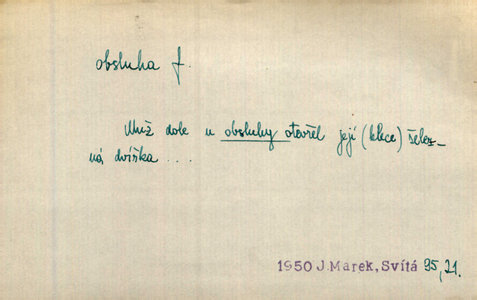 obsluha f.
Muž dole u obsluhy otevřel její (klece) želez-
ná dvířka ...
1950 J. Marek, Svítá 95,21.